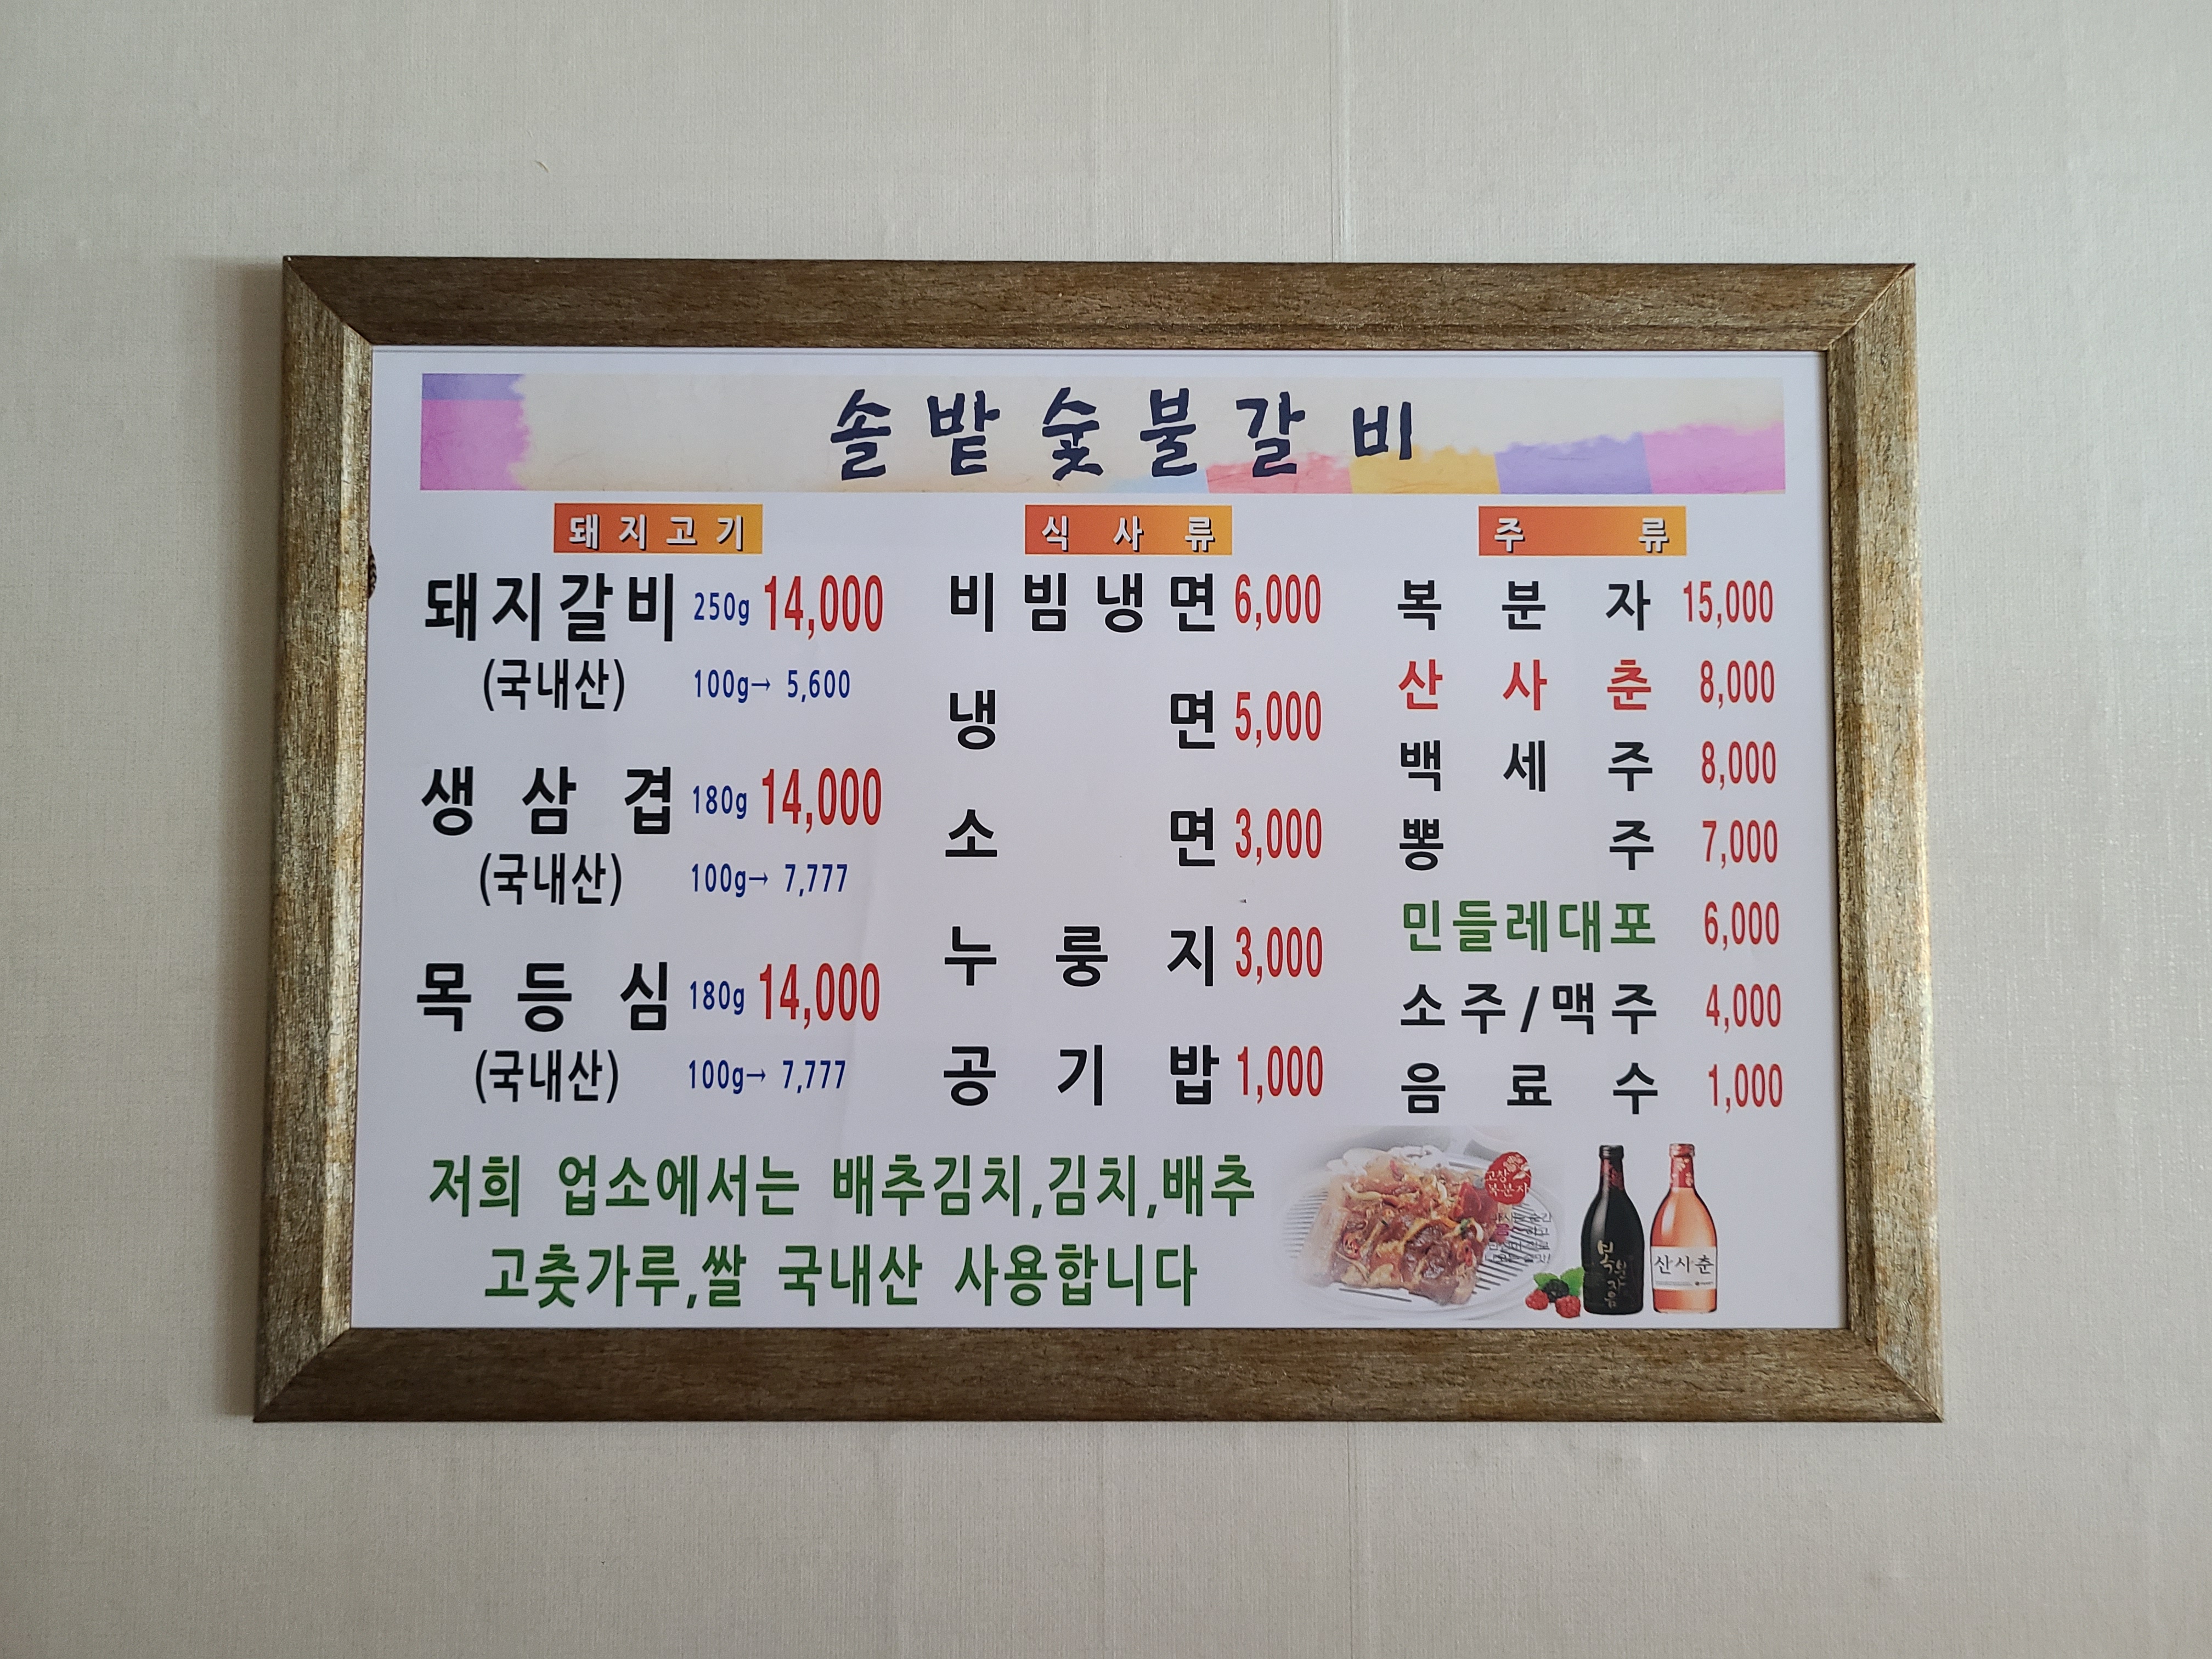 솔밭숯불갈비
돼지고기
돼지갈비 250g 14,000
(국내산) 100g→ 5,600
생삼겹 180g 14,000
(국내산) 100g→ 7,777
목등심 180g 14,000
(국내산) 100g→ 7,777
식사류
비빔냉면 6,000
냉면 5,000
소면 3,000
누룽지 3,000
공기밥 1,000
주류
복분자 15,000
산사춘 8,000
백세주 8,000
뽕주 7,000
민들레대포 6,000
소주/맥주 4,000
음료수 1,000
저희 업소에서는 배추김치,김치,배추
고춧가루,쌀 국내산 사용합니다
고창
복분자
산사춘